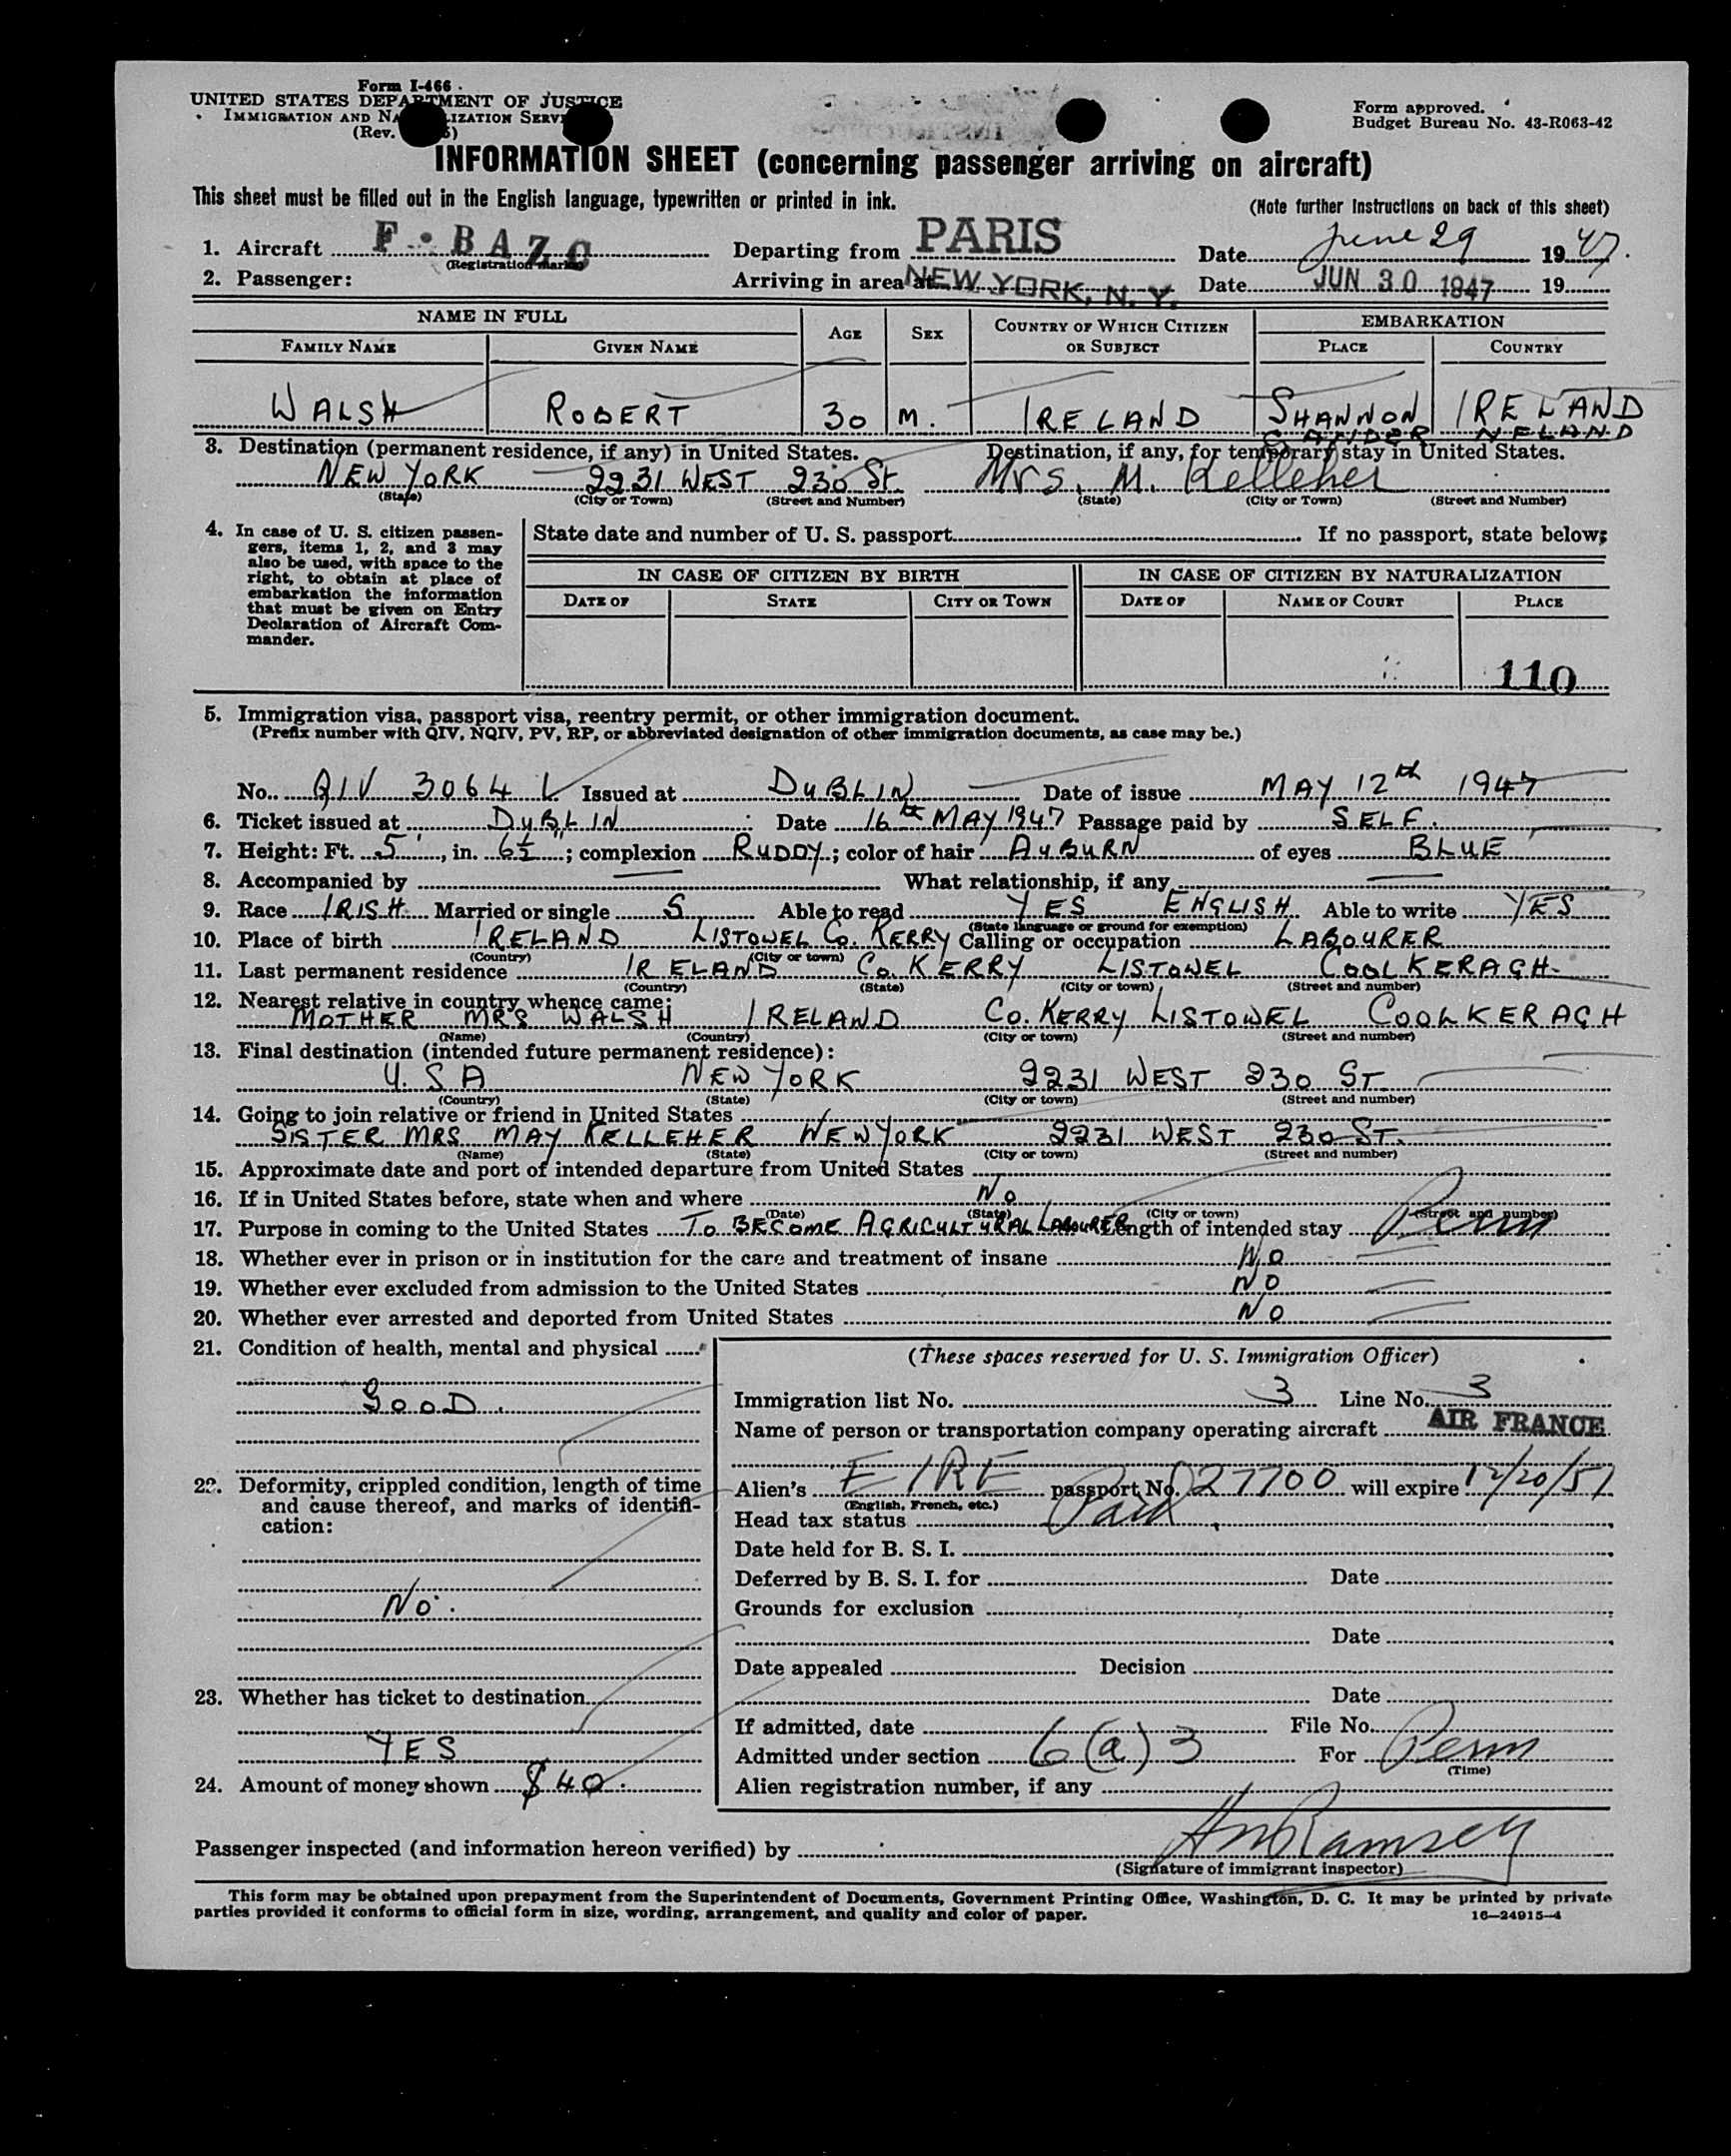 Form I-466
UNITED STATES DEPARTMENT OF JUSTICE Form approved.
IMMIGRATION AND NATURALIZATION SERVICE Budget Bureau No. 43-R063-42
(Rev.
INFORMATION SHEET (concerning passenger arriving on aircraft)
This sheet must be filled out in the English language, typewritten or printed in ink. (Note further instructions on back of this sheet)
1. Aircraft F-BAZC (Registration marks) Departing from PARIS Date June 29 1947.
2. Passenger: Arriving in area at NEW YORK, N. Y. Date JUN 30 1947 19
NAME IN FULL AGE SEX COUNTRY OF WHICH CITIZEN OR SUBJECT EMBARKATION
FAMILY NAME GIVEN NAME PLACE COUNTRY
WALSH ROBERT 30 M. IRELAND SHANNON IRELAND
3. Destination (permanent residence, if any) in United States. Destination, if any, for temporary stay in United States.
NEW YORK 2231 WEST 230 St. Mrs. M. Kelleher
(State) (City or Town) (Street and Number) (State) (City or Town) (Street and Number)
4. In case of U. S. citizen passengers, items 1, 2, and 3 may also be used, with space to the right, to obtain at place of embarkation the information that must be given on Entry Declaration of Aircraft Commander.
State date and number of U. S. passport If no passport, state below:
IN CASE OF CITIZEN BY BIRTH IN CASE OF CITIZEN BY NATURALIZATION
DATE OF STATE CITY OR TOWN DATE OF NAME OF COURT PLACE
110
5. Immigration visa, passport visa, reentry permit, or other immigration document.
(Prefix number with QIV, NQIV, PV, RP, or abbreviated designation of other immigration documents, as case may be.)
No. QIV 3064 Issued at DUBLIN Date of issue MAY 12th 1947
6. Ticket issued at DUBLIN Date 16th MAY 1947 Passage paid by SELF.
7. Height: Ft. 5', in. 6½"; complexion RUDDY; color of hair AUBURN of eyes BLUE
8. Accompanied by — What relationship, if any —
9. Race IRISH Married or single S Able to read YES ENGLISH Able to write YES
(State language or ground for exemption)
10. Place of birth IRELAND LISTOWEL CO. KERRY Calling or occupation LABOURER
(Country) (City or town)
11. Last permanent residence IRELAND CO. KERRY LISTOWEL COOLKERAGH
(Country) (State) (City or town) (Street and number)
12. Nearest relative in country whence came:
MOTHER MRS WALSH IRELAND CO. KERRY LISTOWEL COOLKERAGH
(Name) (Country) (City or town) (Street and number)
13. Final destination (intended future permanent residence):
U.S A NEW YORK 2231 WEST 230 ST.
(Country) (State) (City or town) (Street and number)
14. Going to join relative or friend in United States
SISTER MRS MAY KELLEHER NEW YORK 2231 WEST 230 ST.
(Name) (State) (City or town) (Street and number)
15. Approximate date and port of intended departure from United States
16. If in United States before, state when and where No
(Date) (State) (City or town) (Street and number)
17. Purpose in coming to the United States TO BECOME AGRICULTURAL LABOURER Length of intended stay Perm
18. Whether ever in prison or in institution for the care and treatment of insane NO
19. Whether ever excluded from admission to the United States NO
20. Whether ever arrested and deported from United States NO
21. Condition of health, mental and physical
GOOD.
22. Deformity, crippled condition, length of time and cause thereof, and marks of identification:
No.
23. Whether has ticket to destination
YES
24. Amount of money shown $40.
(These spaces reserved for U. S. Immigration Officer)
Immigration list No. 3 Line No. 3
Name of person or transportation company operating aircraft AIR FRANCE
Alien's EIRE passport No. 27700 will expire 12/20/51
(English, French, etc.)
Head tax status Paid
Date held for B. S. I.
Deferred by B. S. I. for Date
Grounds for exclusion
Date
Date appealed Decision
Date
If admitted, date File No.
Admitted under section 6(a)3 For Perm
(Time)
Alien registration number, if any
Passenger inspected (and information hereon verified) by Ramsey
(Signature of immigrant inspector)
This form may be obtained upon prepayment from the Superintendent of Documents, Government Printing Office, Washington, D. C. It may be printed by private
parties provided it conforms to official form in size, wording, arrangement, and quality and color of paper. 16—24915-4